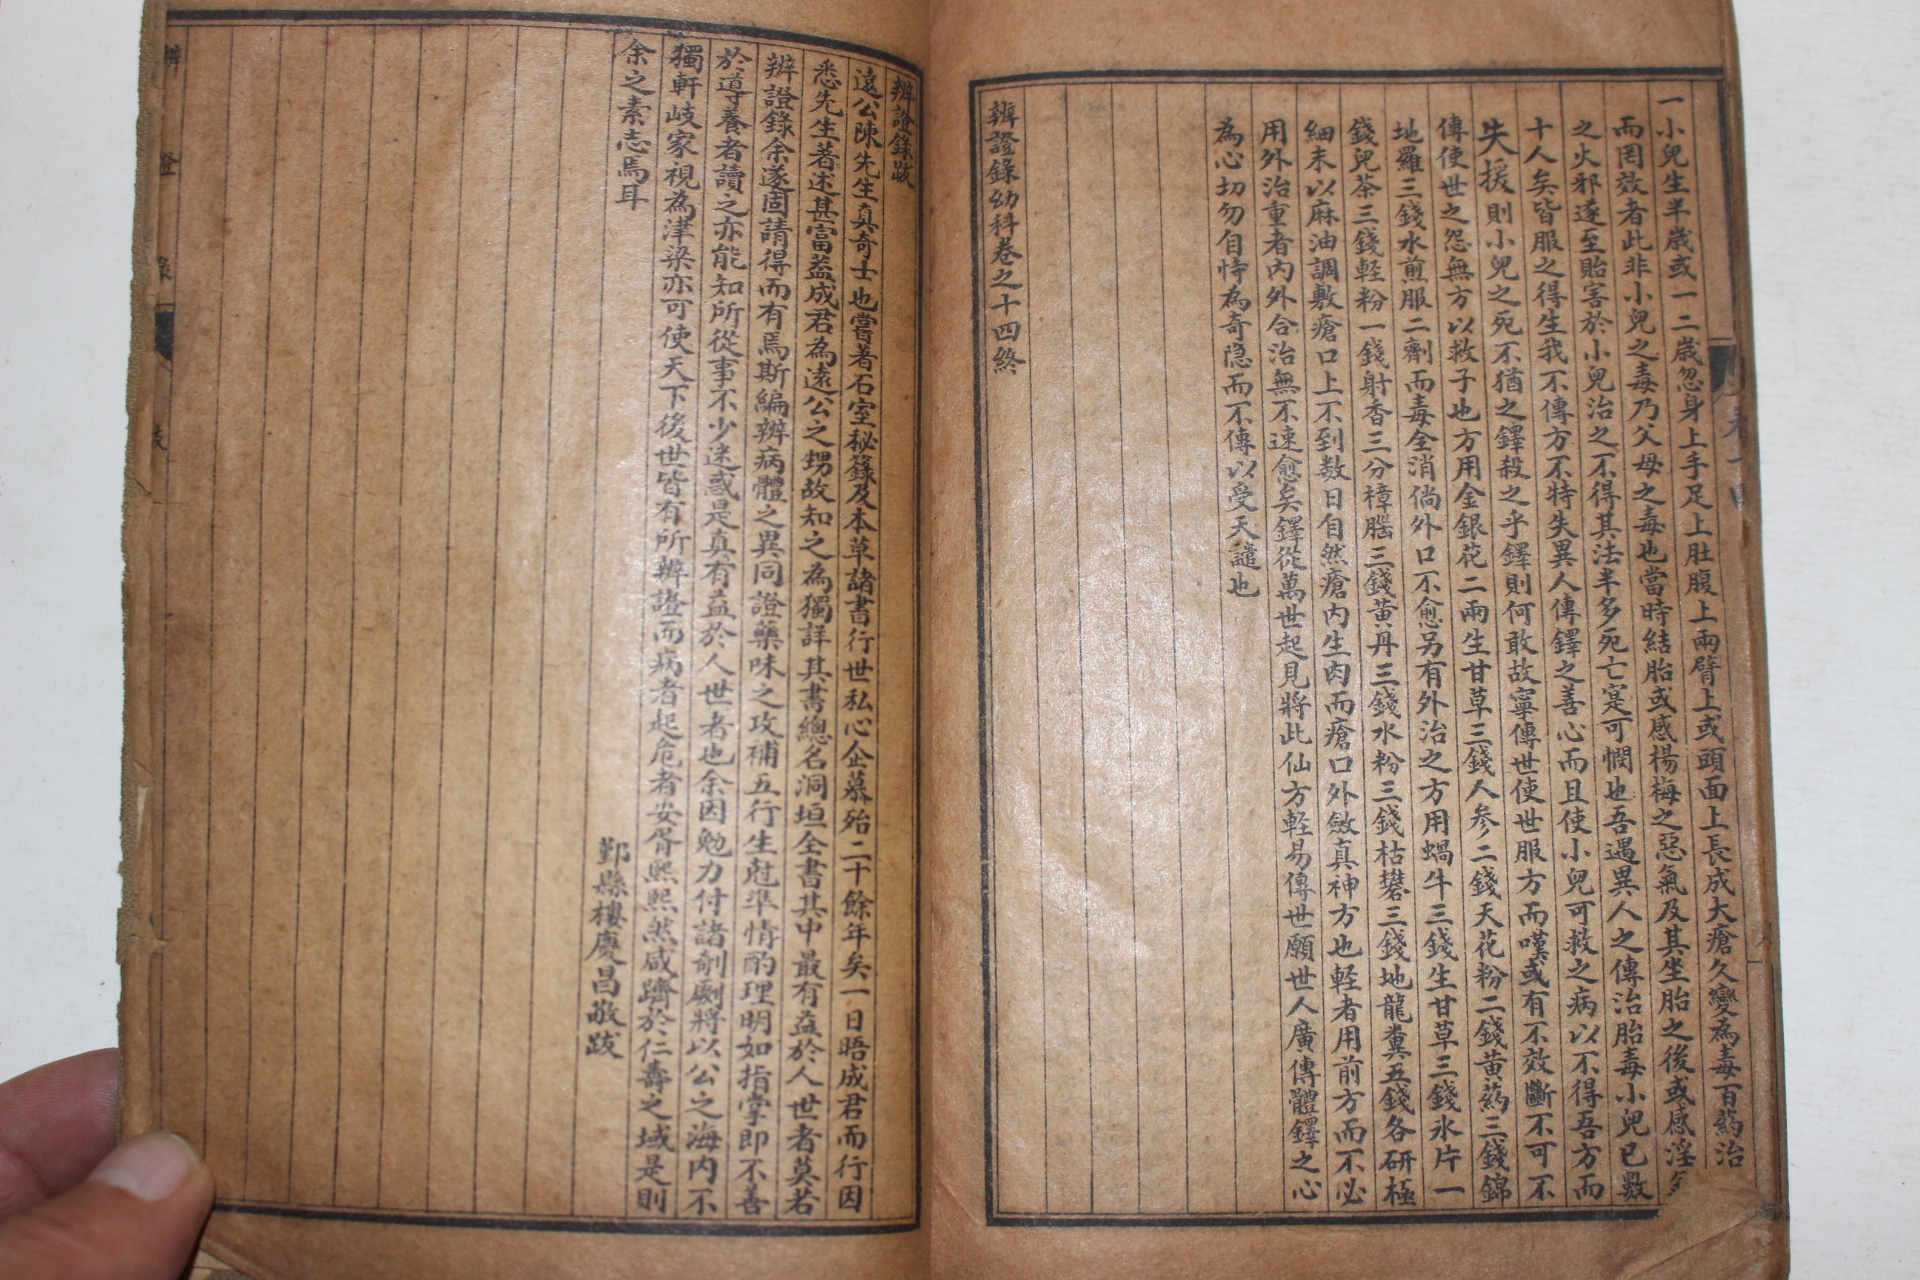 一小兒生半歲或一二歲忽身上手足上肚腹上兩臂上或頭面上長成大瘡久變為毒百药治
而罔效者此非小兒之毒乃父母之毒也當時結胎或感楊梅之惡氣及其坐胎之後或感淫
之火邪遂至貽害於小兒治之不得其法半多死亡寔可憫也吾遇異人之傳治胎毒小兒已數
十人矣皆服之得生我不傳方不特失異人傳鐸之善心而且使小兒可救之病以不得吾方而
失援則小兒之死不猶之鐸殺之乎鐸則何敢故寧傳世使世服方而嘆或有不效斷不可不
傳使世之怨無方以救子也方用金銀花二兩生甘草三錢人参二錢天花粉二錢黄药三錢錦
地羅三錢水煎服二劑而毒全消倘外口不愈另有外治之方用蝸牛三錢生甘草三錢氷片一
錢兒茶三錢軽粉一錢射香三分樟腦三錢黄丹三錢水粉三錢枯礬三錢地龍糞五錢各研極
細末以麻油調敷瘡口上不到数日自然瘡内生肉而瘡口外斂真神方也軽者用前方而不必
用外治重者内外合治無不速愈矣鐸從萬世起見將此仙方軽易傳世願世人廣傳體鐸之心
為心切勿自恃為奇隐而不傳以受天譴也
辨證錄幼科卷之十四終
辨證錄跋
遠公陳先生真奇士也嘗著石室秘籙及本草諸書行世私心企慕殆二十餘年矣一日晤成君而行因
悉先生著述甚富蓋成君為遠公之甥故知之為獨詳其書總名洞垣全書其中最有益於人世者莫若
辨證錄余遂固請得而有焉斯編辨病體之異同證藥味之攻補五行生尅準情酌理明如指掌即不善
於導養者讀之亦能知所從事不少迷惑是真有益於人世者也余因勉力付諸剞劂將以公之海内不
獨軒岐家視為津梁亦可使天下後世皆有所辨證而病者起危者安胥熙熙然咸躋於仁壽之域是則
余之素志焉耳
鄞縣樓慶昌敬跋